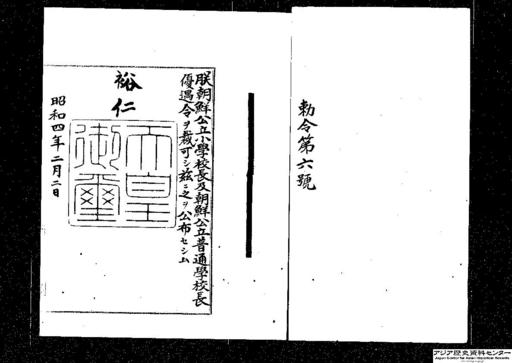 勅令第六號
朕朝鮮公立小學校長及朝鮮公立普通學校長
優遇令ヲ裁可シ茲ニ之ヲ公布セシム
裕仁
天皇御璽
昭和四年二月二日
アジア歴史資料センター
Japan Center for Asian Historical Records